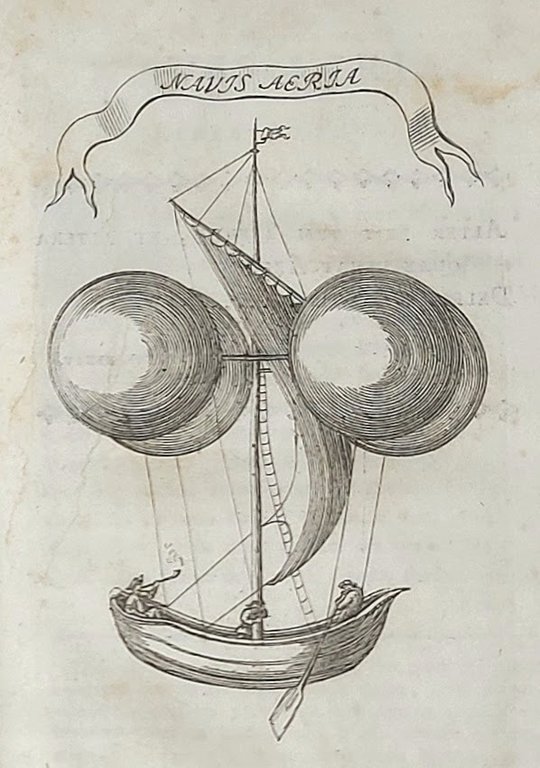 NAVIS AERIA